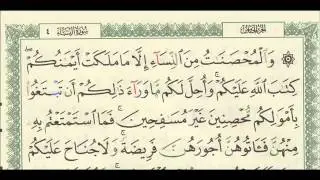 الجزء الخامس سورة النساء ٤
۞ وَالْمُحْصَنَٰتُ مِنَ النِّسَآءِ إِلَّا مَا مَلَكَتْ أَيْمَٰنُكُمْ ۖ
كِتَٰبَ اللَّهِ عَلَيْكُمْ ۚ وَأُحِلَّ لَكُم مَّا وَرَآءَ ذَٰلِكُمْ أَن تَبْتَغُوا۟
بِأَمْوَٰلِكُم مُّحْصِنِينَ غَيْرَ مُسَٰفِحِينَ ۚ فَمَا اسْتَمْتَعْتُم بِهِۦ
مِنْهُنَّ فَـَٔاتُوهُنَّ أُجُورَهُنَّ فَرِيضَةً ۚ وَلَا جُنَاحَ عَلَيْكُمْ